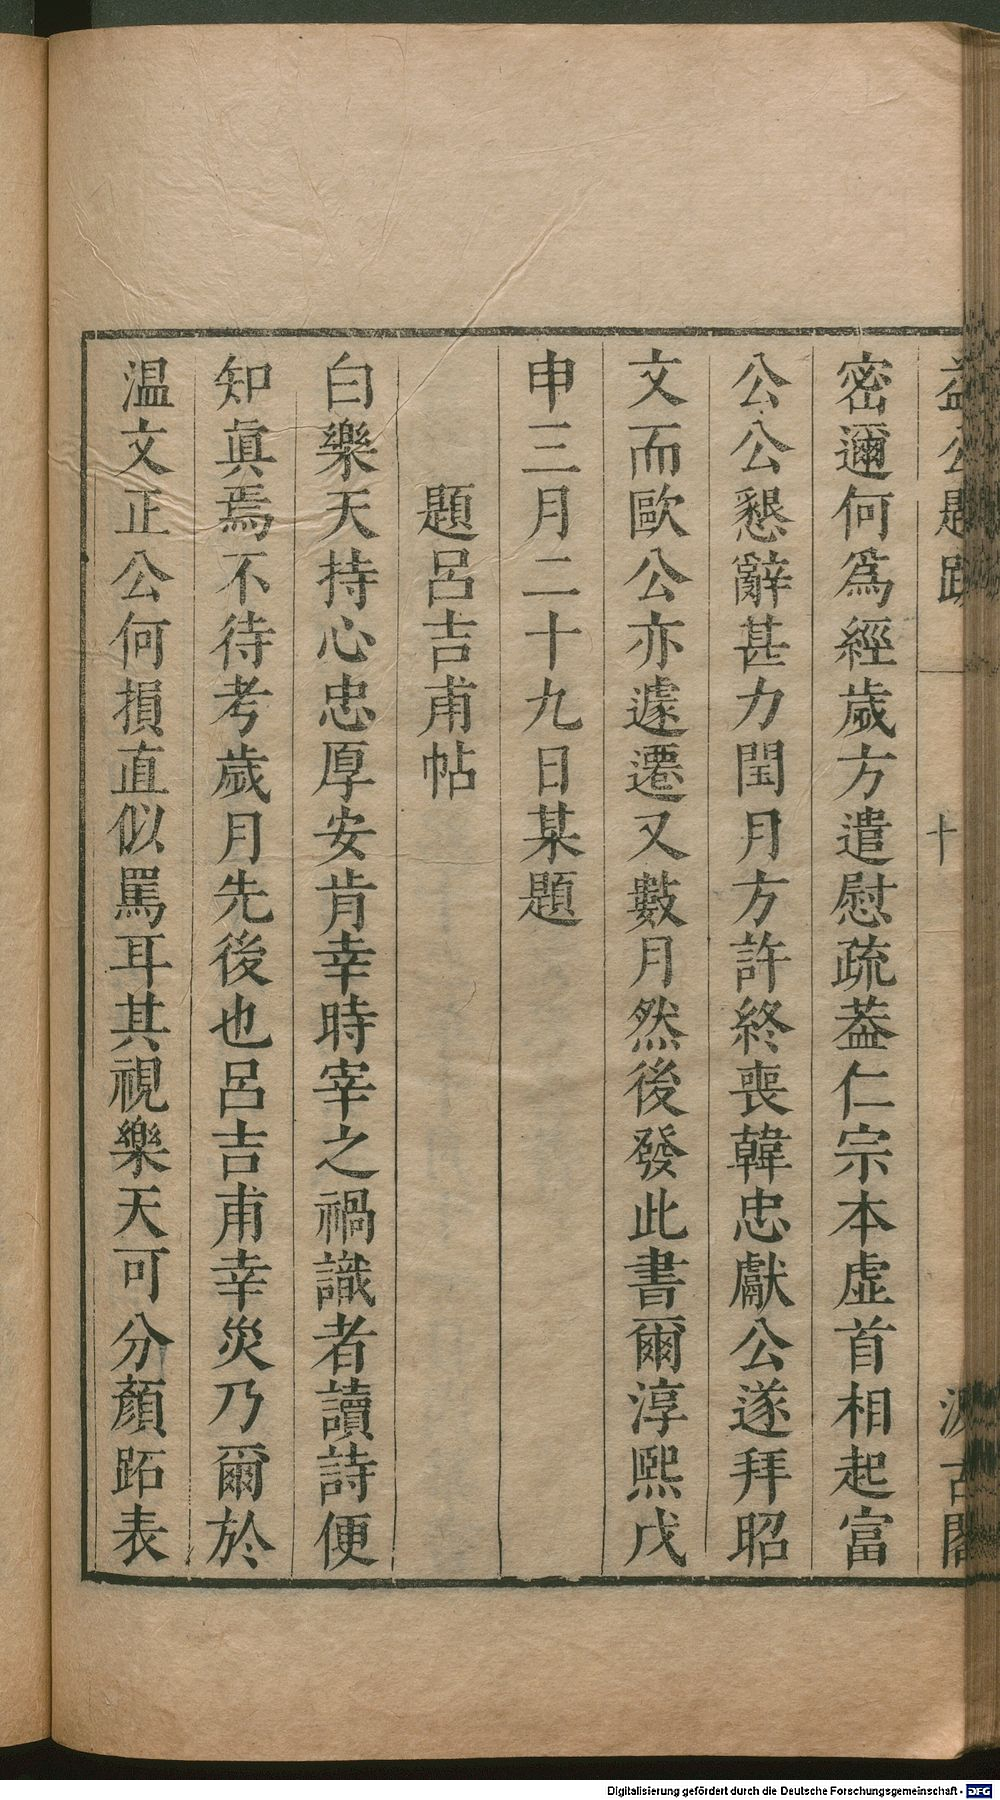 益公題跋 十 汲古閣
密邇何爲經歲方遣慰疏葢仁宗本虛首相起富
公公懇辭甚力閏月方許終喪韓忠獻公遂拜昭
文而歐公亦遽遷又數月然後發此書爾淳熙戊
申三月二十九日某題
題呂吉甫帖
白樂天持心忠厚安肯幸時宰之禍識者讀詩便
知眞焉不待考歲月先後也呂吉甫幸災乃爾於
温文正公何損直似罵耳其視樂天可分顏跖表
Digitalisierung gefördert durch die Deutsche Forschungsgemeinschaft - DFG